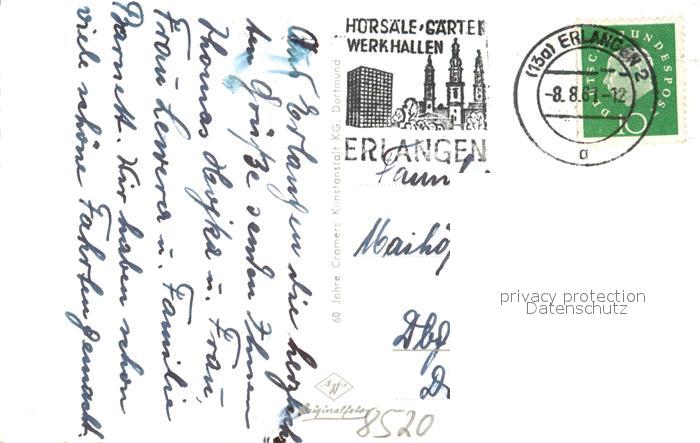 Aus Erlangen die herzlich-
sten Grüße senden Ihnen
Thomas u. Frau,
Frau u. Familie
Wir haben schon
viele schöne Fahrten gemacht.
60 Jahre Cramers Kunstanstalt KG, Dortmund
HÖRSÄLE·GÄRTEN
WERKHALLEN
ERLANGEN
(13a) ERLANGEN 2
-8.8.61-12
a
DEUTSCHE BUNDESPOST
10
Maihö
Dbg
D
privacy protection
Datenschutz
Originalfoto
8520